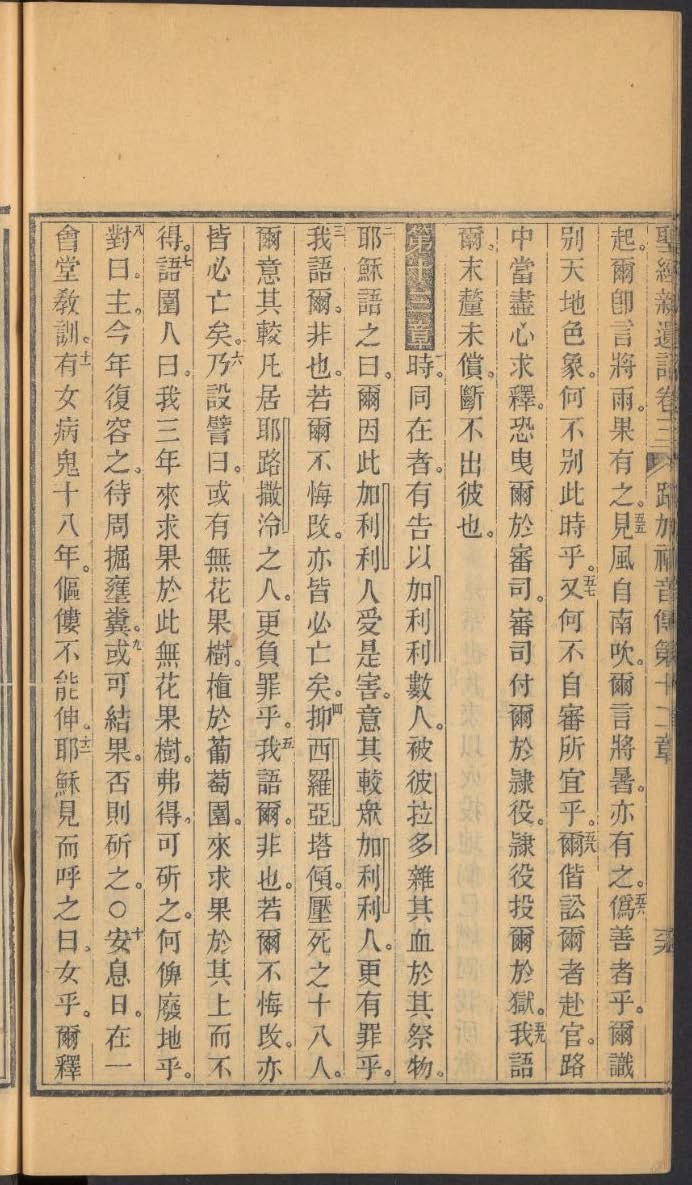 聖經新遺詔卷三 路加福音傳第十二章
起。爾卽言將雨。果有之。五五見風自南吹。爾言將暑。亦有之。五六僞善者乎。爾識
别天地色象。何不别此時乎。五七又何不自審所宜乎。五八爾偕訟爾者赴官。路
中當盡心求釋。恐曳爾於審司。審司付爾於隷役。隷役投爾於獄。五九我語
爾。末釐未償。斷不出彼也。
第十三章一時。同在者。有告以加利利數人。被彼拉多雜其血於其祭物。
二耶穌語之曰。爾因此加利利人受是害。意其較衆加利利人。更有罪乎。
三我語爾。非也。若爾不悔改。亦皆必亡矣。四抑西羅亞塔傾。壓死之十八人。
爾意其較凡居耶路撒冷之人。更負罪乎。五我語爾。非也。若爾不悔改。亦
皆必亡矣。六乃設譬曰。或有無花果樹。植於葡萄園。來求果於其上而不
得。七語園人曰。我三年來求果於此無花果樹。弗得。可斫之。何俾廢地乎。
八對曰。主。今年復容之。待周掘壅糞。九或可結果。否則斫之。○十安息日。在一
會堂敎訓。十一有女病鬼十八年。傴僂不能伸。十二耶穌見而呼之曰。女乎。爾釋